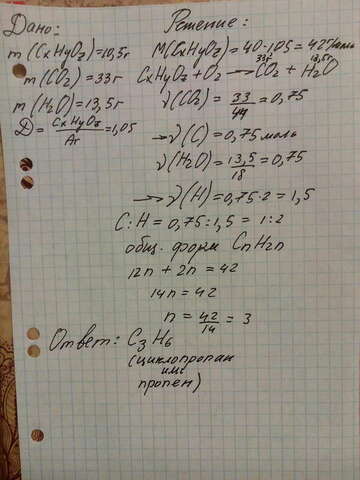 Дано:
m(CxHyOz)=10,5г
m(CO2)=33г
m(H2O)=13,5г
D=CxHyOz/Ar=1,05
Решение:
M(CxHyOz)=40·1,05=42г/моль
33г 13,5г
CxHyOz+O2→CO2+H2O
ν(CO2)=33/44=0,75
→ν(C)=0,75моль
ν(H2O)=13,5/18=0,75
→ν(H)=0,75·2=1,5
C:H=0,75:1,5=1:2
общ. форм CnH2n
12n+2n=42
14n=42
n=42/14=3
Ответ: C3H6
(циклопропан
или
пропен)